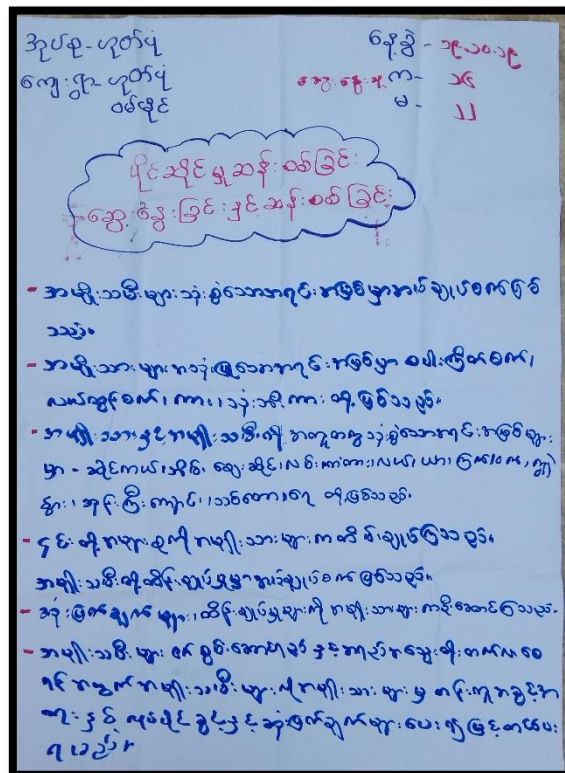 အုပ်စု - ဟုတ်ပုံ
နေ့စွဲ - ၁၉.၁၀.၁၉
ကျေးရွာ - ဟုတ်ပုံ
ဆွေးနွေးသူ ကျ - ၁၆
ဝမ်မိုင်
မ - ၂၂
ပိုင်ဆိုင်မှုဆန်းစစ်ခြင်း
ဆွေးနွေးခြင်းနှင့်ဆန်းစစ်ခြင်း
- အမျိုးသမီးများသုံးစွဲသောအရင်းအမြစ်မှာအပ်ချုပ်စက်ဖြစ်
သည်။
- အမျိုးသားများအသုံးပြုသောအရင်းအမြစ်မှာ စပါးကြိတ်စက်၊
လယ်ထွန်စက်၊ ကား၊ သုံးဘီးကား တို့ဖြစ်သည်။
- အမျိုးသားနှင့်အမျိုးသမီးတို့ အတူတကွသုံးစွဲသောအရင်းအမြစ်များ
မှာ - ဆိုင်ကယ်၊ အိမ်၊ ဈေးဆိုင်၊ လမ်း၊ တံတား၊ လယ်၊ ယာ၊ ခြံ၊ ဝက်၊ ကျွဲ
နွား၊ ဘုန်းကြီးကျောင်း၊ သစ်တော၊ ရေ တို့ဖြစ်သည်။
- ၎င်းတို့အများစုကိုအမျိုးသားများကထိန်းချုပ်ကြသည်။
အမျိုးသမီးတို့ထိန်းချုပ်မှုမှာအပ်ချုပ်စက်ဖြစ်သည်။
- ဆုံးဖြတ်ချက်များ၊ ထိန်းချုပ်မှုများကိုအမျိုးသားများကဦးဆောင်ကြသည်။
- အမျိုးသမီးများ စွမ်းဆောင်ရည် နှင့်အရည်အသွေးတိုးတက်လာစေ
ရန်အတွက်အမျိုးသမီးများကိုအမျိုးသားများမှ တန်းတူအခွင့်အ
ရေးနှင့် လုပ်ပိုင်ခွင့်နှင့်ဆုံးဖြတ်ချက်များပေး၍မြှင့်တင်ပေး
ရမည်။